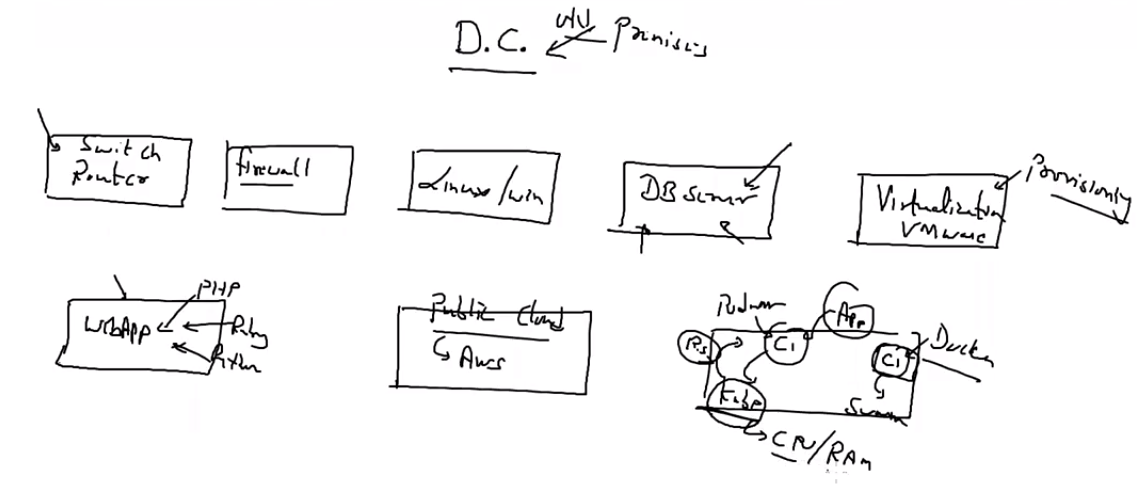 D.C.
Premises
Switch
Router
firewall
Linux/win
DB server
Virtualization
VMware
Provisioning
WebApp
PHP
Ruby
Python
Public Cloud
Aws
Podman
App
C1
C1
Docker
Swarm
Kube
CPU/RAM